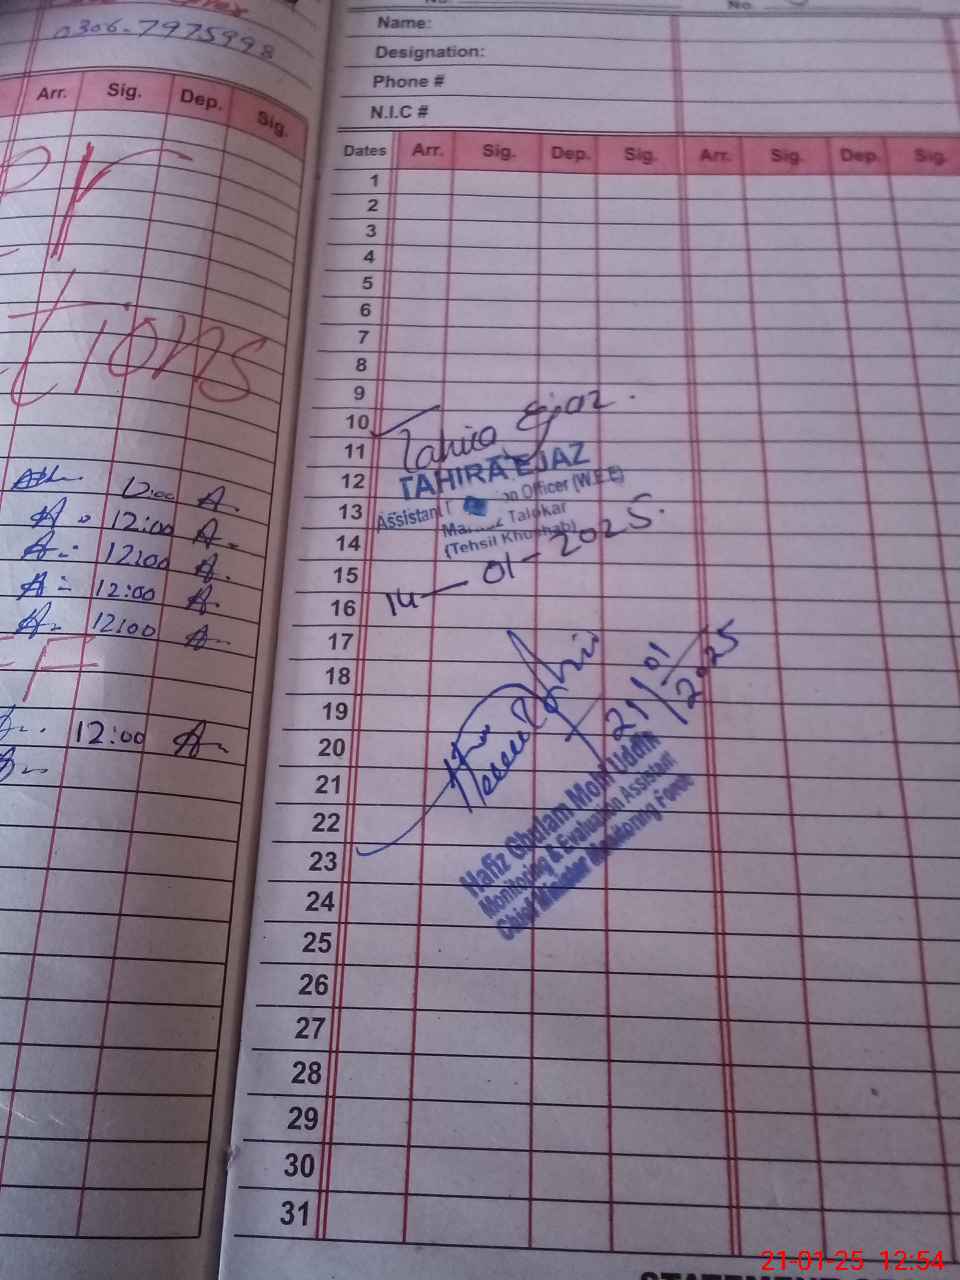 0306-7975998
Arr. Sig. Dep. Sig.
tions
12:00 A.
A. 12:00 A.
A. 12:00 A.
A 12:00 A.
A. 12:00 A.
F
12:00 A.
No.
Name:
Designation:
Phone #
N.I.C #
Dates Arr. Sig. Dep. Sig. Arr. Sig. Dep. Sig.
1
2
3
4
5
6
7
8
9
10
11
12
13
14
15
16
17
18
19
20
21
22
23
24
25
26
27
28
29
30
31
Tahira Ejaz.
TAHIRA EJAZ
Assistant Officer (W.E.E)
Talokar
(Tehsil Khushab)
14-01-2025.
21/01/2025
Hafiz Ghulam Mohi Uddin
Monitoring & Evaluation Assistant
Chief Minister Monitoring Force
21-01-25 12:54